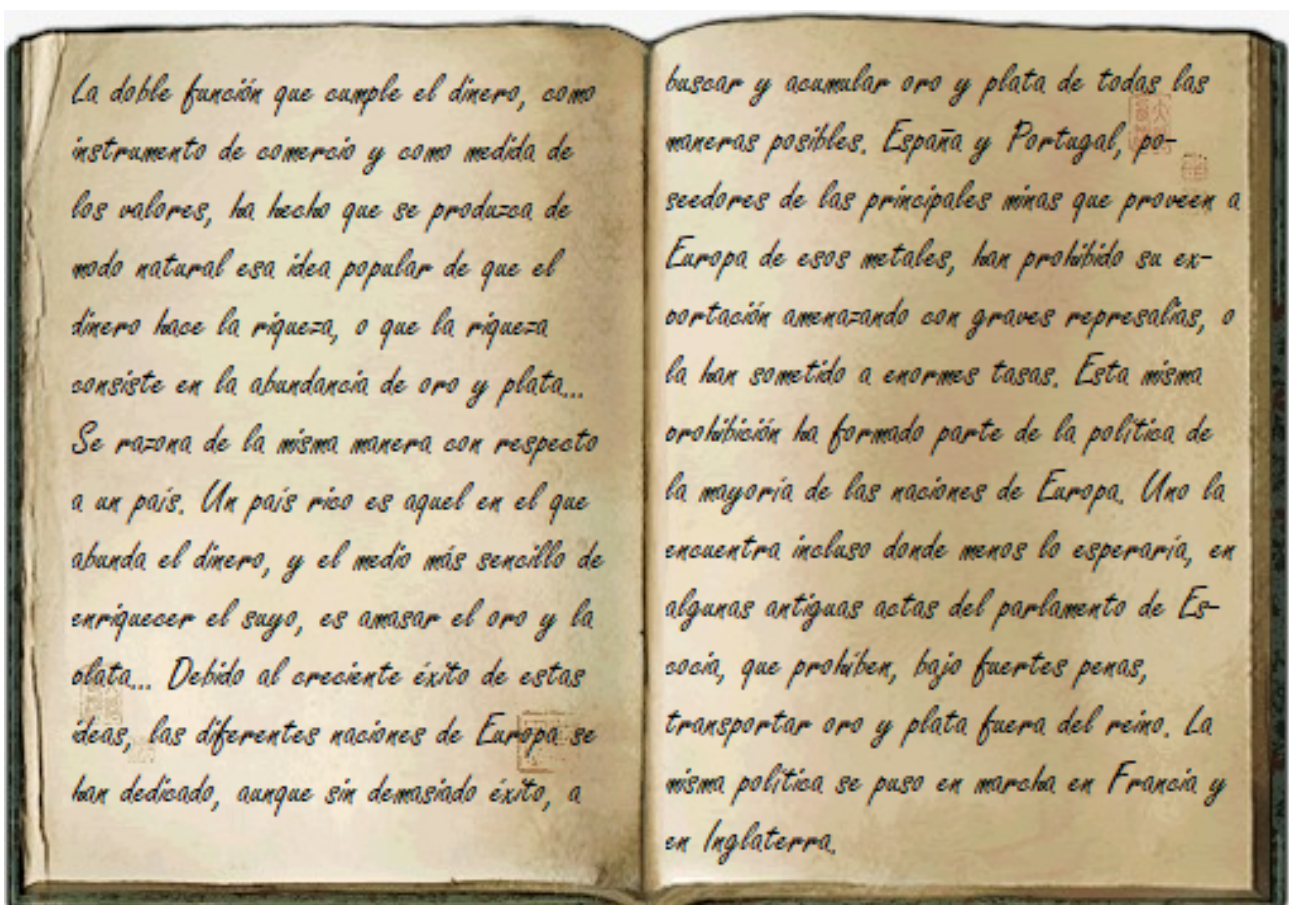 La doble función que cumple el dinero, como
instrumento de comercio y como medida de
los valores, ha hecho que se produzca de
modo natural esa idea popular de que el
dinero hace la riqueza, o que la riqueza
consiste en la abundancia de oro y plata...
Se razona de la misma manera con respecto
a un país. Un país rico es aquel en el que
abunda el dinero, y el medio más sencillo de
enriquecer el suyo, es amasar el oro y la
plata... Debido al creciente éxito de estas
ideas, las diferentes naciones de Europa se
han dedicado, aunque sin demasiado éxito, a
buscar y acumular oro y plata de todas las
maneras posibles. España y Portugal, po-
seedores de las principales minas que proveen a
Europa de esos metales, han prohibido su ex-
portación amenazando con graves represalias, o
la han sometido a enormes tasas. Esta misma
prohibición ha formado parte de la política de
la mayoría de las naciones de Europa. Uno la
encuentra incluso donde menos lo esperaría, en
algunas antiguas actas del parlamento de Es-
cocia, que prohiben, bajo fuertes penas,
transportar oro y plata fuera del reino. La
misma política se puso en marcha en Francia y
en Inglaterra.